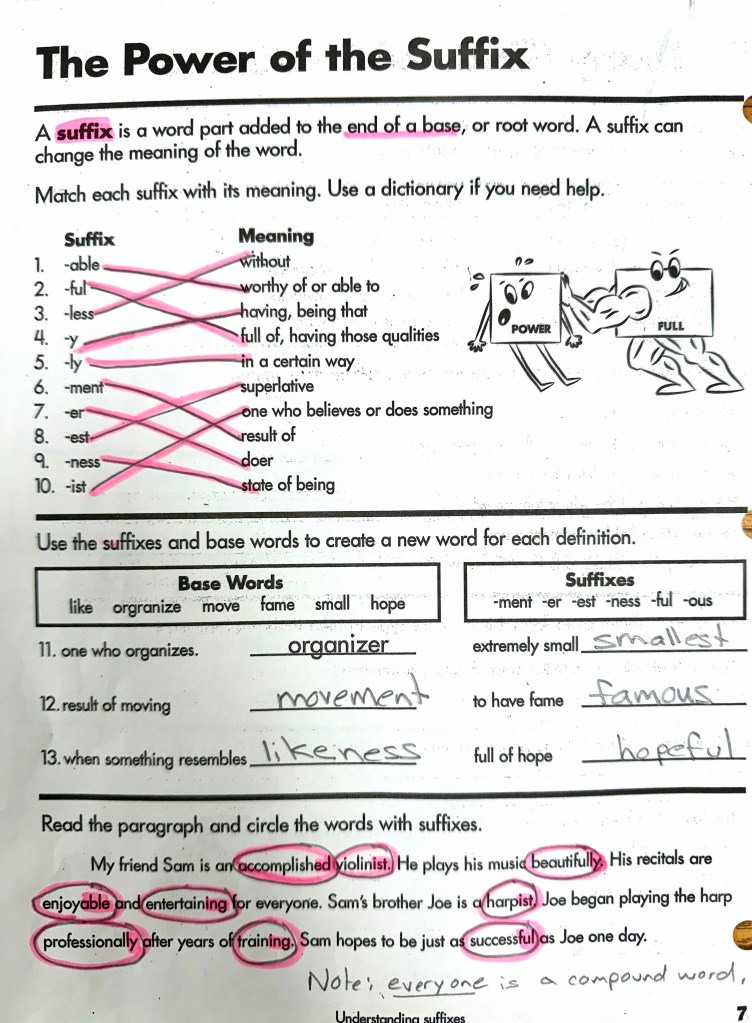 The Power of the Suffix
A suffix is a word part added to the end of a base, or root word. A suffix can
change the meaning of the word.
Match each suffix with its meaning. Use a dictionary if you need help.
Suffix Meaning
1. -able without
2. -ful worthy of or able to
3. -less having, being that
4. -y full of, having those qualities
5. -ly in a certain way
6. -ment superlative
7. -er one who believes or does something
8. -est result of
9. -ness doer
10. -ist state of being
POWER
FULL
Use the suffixes and base words to create a new word for each definition.
Base Words
like orgranize move fame small hope
Suffixes
-ment -er -est -ness -ful -ous
11. one who organizes. organizer extremely small smallest
12. result of moving movement to have fame famous
13. when something resembles likeness full of hope hopeful
Read the paragraph and circle the words with suffixes.
My friend Sam is an accomplished violinist. He plays his music beautifully. His recitals are
enjoyable and entertaining for everyone. Sam's brother Joe is a harpist. Joe began playing the harp
professionally after years of training. Sam hopes to be just as successful as Joe one day.
Note: everyone is a compound word.
Understanding suffixes 7